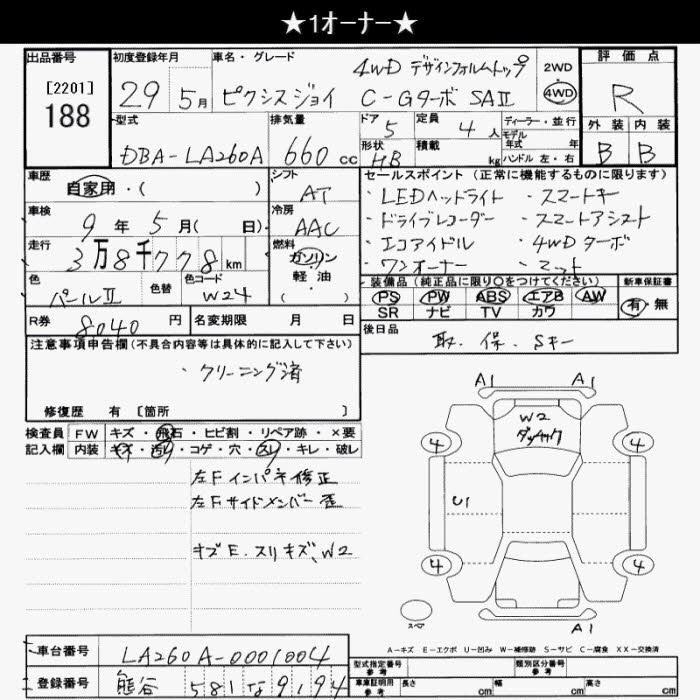 ★1オーナー★
出品番号
[2201]
188
初度登録年月
29 5月
車名・グレード
4WD デザインフォルムトップ
ピクシスジョイ C-Gターボ SAⅡ
2WD
4WD
評価点
R
外装 内装
B B
型式
DBA-LA260A
排気量
660 cc
ドア 5
定員 4人
形状 HB
積載 kg
ディーラー・並行
モデル
年式 年
ハンドル 左・右
車歴
自家用・( )
シフト
AT
車検
9年 5月( 日)
冷房
AAC
走行
3万8千778km
燃料
ガソリン
軽油
( )
色
パールⅡ
色替
色コード
W24
セールスポイント (正常に機能するものに限ります)
・LEDヘッドライト ・スマートキー
・ドライブレコーダー ・スマートアシスト
・エコアイドル ・4WD ターボ
・ワンオーナー ・マット
装備品 (純正品に限り〇をつけてください)
PS PW ABS エアB AW
SR ナビ TV カワ
新車保証書
有・無
R券 8040円
名変期限 月 日
後日品
取.保.Sキー
注意事項申告欄(不具合内容等は具体的に記入して下さい)
・クリーニング済
修復歴 有 [箇所 ]
検査員
記入欄
FW キズ・飛石・ヒビ割・リペア跡・×要
内装 キズ・汚れ・コゲ・穴・スレ・キレ・破レ
左Fインパネ修正
左Fサイドメンバー歪
キズE.スリキズ、W2
A1 A1
W2
4 4
U1
4 4
スペア
A1
A-キズ E-エクボ U-凹み W-補修跡 S-サビ C-腐食 XX-交換済
車台番号
LA260A-0001004
登録番号
熊谷 581 な 9194
型式指定番号
参考
類別区分番号
参考
車庫証明用
参考
長さ cm
幅 cm
高さ cm